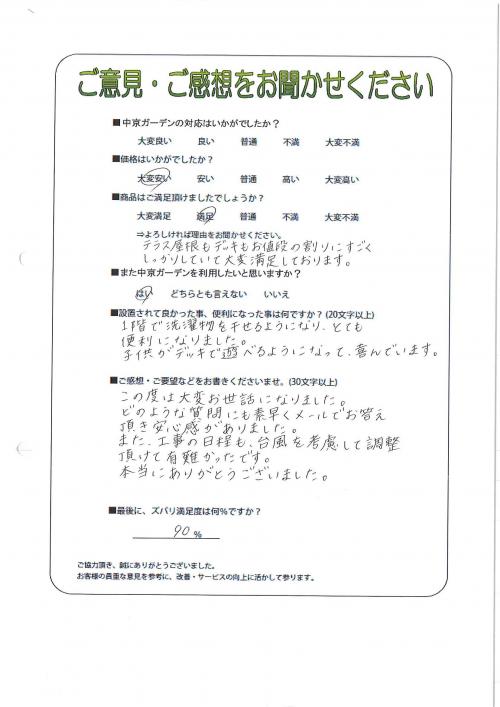 ご意見・ご感想をお聞かせください
■中京ガーデンの対応はいかがでしたか？
大変良い 良い 普通 不満 大変不満
■価格はいかがでしたか？
大変安い 安い 普通 高い 大変高い
■商品はご満足頂けましたでしょうか？
大変満足 満足 普通 不満 大変不満
⇒よろしければ理由をお聞かせください。
テラス屋根もデッキもお値段の割りにすごく
しっかりしていて大変満足しております。
■また中京ガーデンを利用したいと思いますか？
はい どちらとも言えない いいえ
■設置されて良かった事、便利になった事は何ですか？(20文字以上)
1階で洗濯物を干せるようになり、とても
便利になりました。
子供がデッキで遊べるようになって、喜んでいます。
■ご感想・ご要望などをお書きくださいませ。(30文字以上)
この度は大変お世話になりました。
どのような質問にも素早くメールでお答え
頂き安心感がありました。
また、工事の日程も、台風を考慮して調整
頂けて有難かったです。
本当にありがとうございました。
■最後に、ズバリ満足度は何％ですか？
90 %
ご協力頂き、誠にありがとうございました。
お客様の貴重な意見を参考に、改善・サービスの向上に活かして参ります。